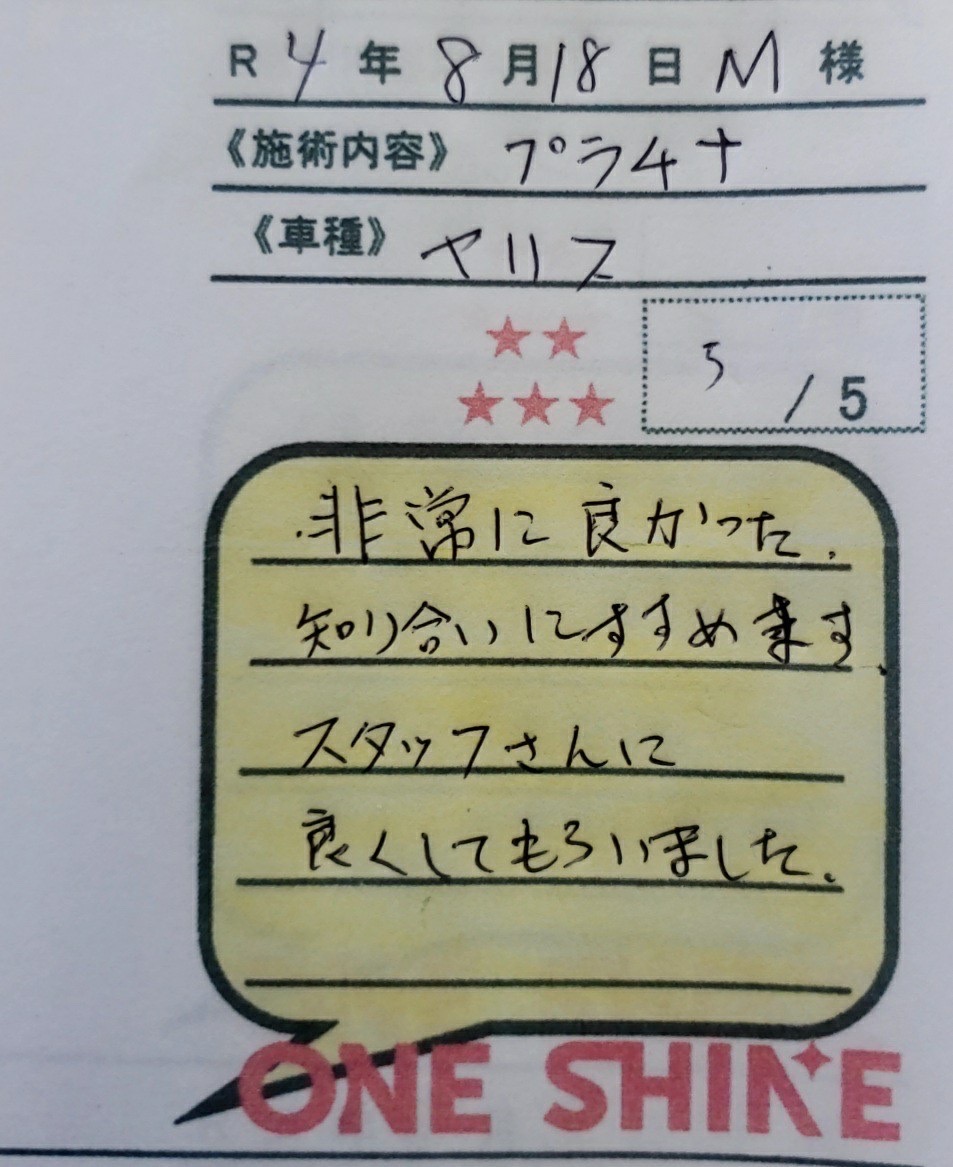 R 4 年 8 月 18 日 M 様
《施術内容》 プラチナ
《車種》 ヤリス
5 / 5
非常に良かった。
知り合いにすすめます。
スタッフさんに
良くしてもらいました。
ONE SHINE